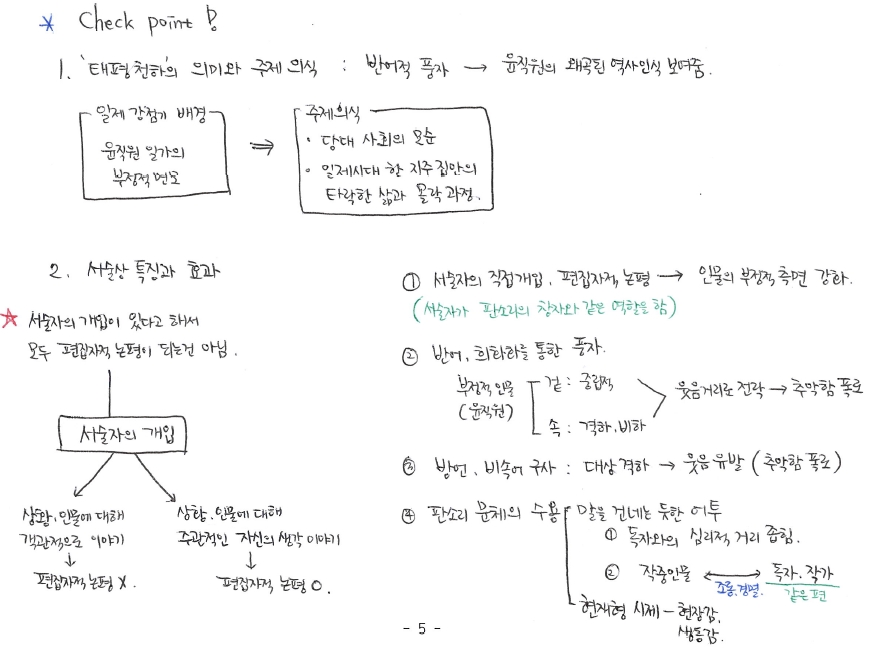 * Check point !
1. '태평천하'의 의미와 주제 의식 : 반어적 풍자 → 윤직원의 왜곡된 역사인식 보여줌.
일제 강점기 배경
윤직원 일가의
부정적면모
⇒
주제의식
· 당대 사회의 모순
· 일제시대 한 지주 집안의
타락한 삶과 몰락 과정.
2. 서술상 특징과 효과
☆ 서술자의 개입이 있다고 해서
모두 편집자적 논평이 되는건 아님.
서술자의 개입
상황, 인물에 대해
객관적으로 이야기
↓
편집자적 논평 X.
상황, 인물에 대해
주관적인 자신의 생각 이야기
↓
편집자적 논평 O.
① 서술자의 직접개입, 편집자적 논평 → 인물의 부정적 측면 강화.
(서술자가 판소리의 창자와 같은 역할을 함)
② 반어, 희화화를 통한 풍자.
부정적 인물
(윤직원)
겉 : 중립적
속 : 격하, 비하
웃음거리로 전락 → 추악함 폭로
③ 방언, 비속어 구사 : 대상 격하 → 웃음 유발 (추악함 폭로)
④ 판소리 문체의 수용
말을 건네는 듯한 어투
① 독자와의 심리적 거리 좁힘.
② 작중인물 ↔ 독자. 작가
조롱, 경멸. 같은 편
현재형 시제 - 현장감,
생동감.
- 5 -